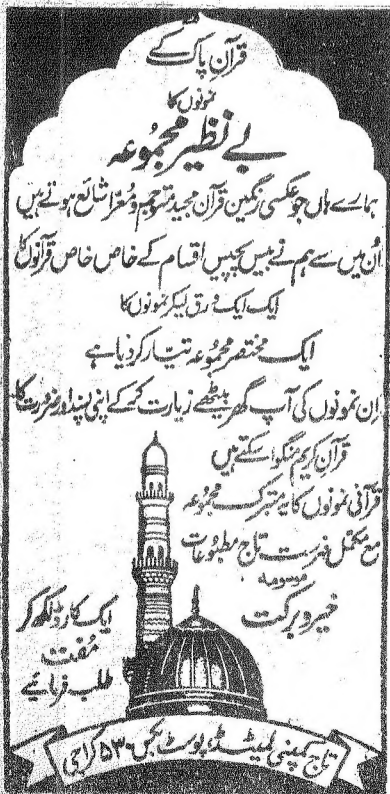 قرآن پاک کے
نمونوں کا
بے نظیر مجموعہ
ہمارے ہاں جو عکسی رنگین قرآن مجید مترجم و معرّا شائع ہوتے ہیں
اُن میں سے ہم نے بیس پچیس اقسام کے خاص خاص قرآنوں کا
ایک ایک ورق لیکر نمونوں کا
ایک مختصر مجموعہ تیّار کر دیا ہے
اِن نمونوں کی آپ گھر بیٹھے زیارت کر کے اپنی پسند اور ضرورت کا
قرآن کریم منگوا سکتے ہیں
قرآنی نمونوں کا یہ متبرک مجموعہ
مع مکمل فہرست تاج مطبوعات
موسومہ
خیر و برکت
ایک کارڈ لکھ کر
مُفت
طلب فرمائیے
تاج کمپنی لمیٹڈ، پوسٹ بکس ۵۳۰ کراچی